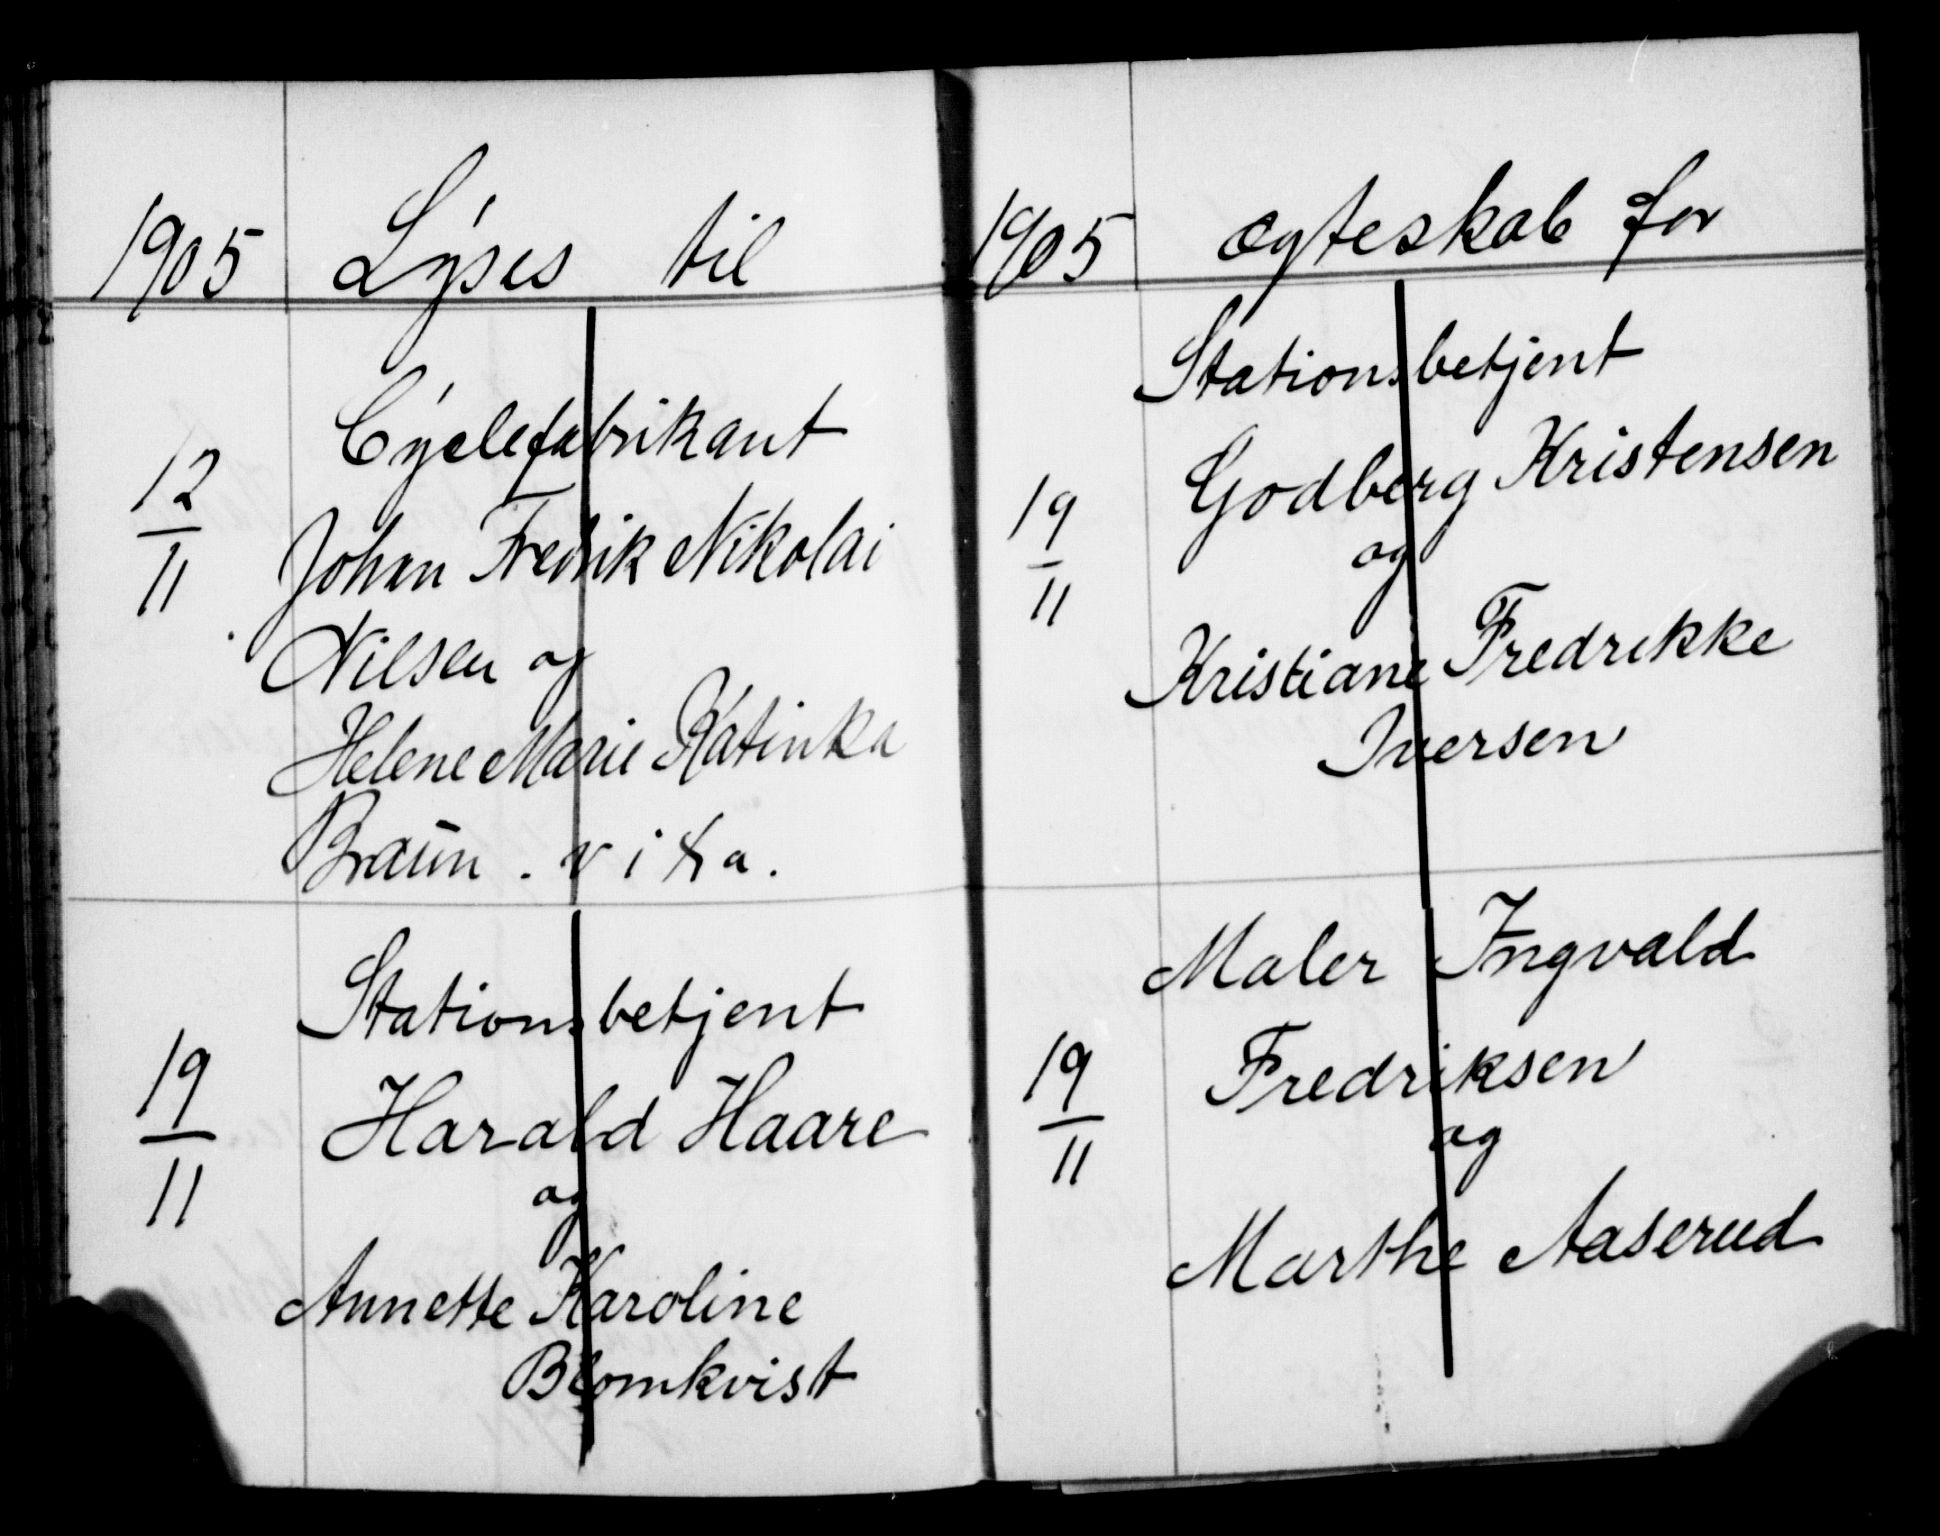 1905 Lyses til
Cyclefabrikant
12
11
Johan Fredrik Nikolai
Nilsen og
Helene Marie Katinka
Braun. vixa.
Stationsbetjent
19
11
Harald Haare
og
Annette Karoline
Blomkvist
1905 ægteskab for
Stationsbetjent
Godberg Kristensen
19
11
og
Kristiane Fredrikke
Iversen
Maler Ingvald
19
11
Fredriksen
og
Marthe Aaserud